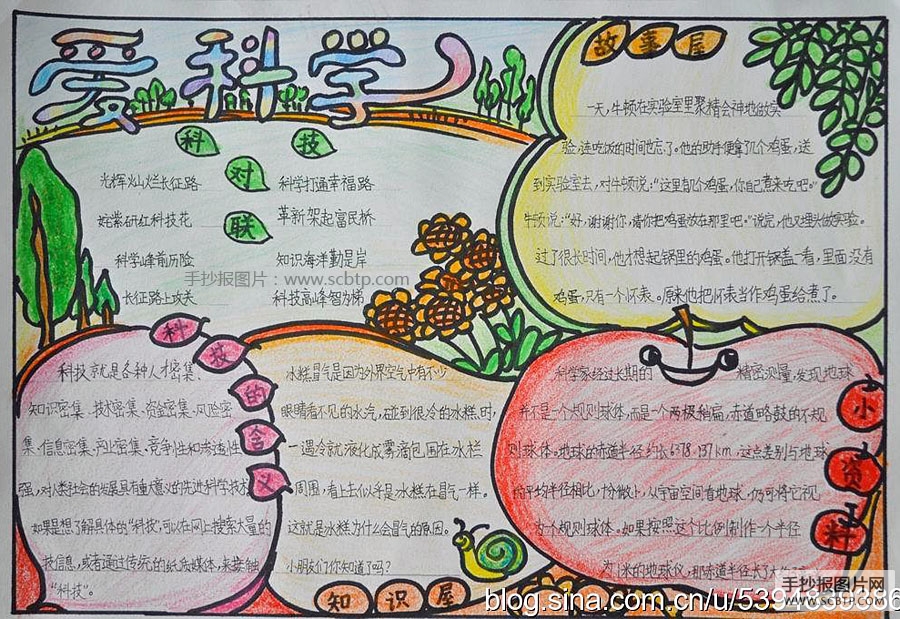 爱科学
科技
对
联
光辉灿烂长征路
科学打通幸福路
姹紫研红科技花
革新架起富民桥
科学峰前历险
知识海洋勤是岸
长征路上攻关
科技高峰智为梯
手抄报图片：www.scbtp.com
故事屋
一天,牛顿在实验室里聚精会神地做实
验,连吃饭的时间地忘了。他的助手便拿了几个鸡蛋,送
到实验室去,对牛顿说:“这里有几个鸡蛋,你自己煮来吃吧。”
牛顿说:“好,谢谢你,请你把鸡蛋放在那里吧。”说完,他又埋头做实验。
过了很长时间,他才想起锅里的鸡蛋。他打开锅盖一看,里面没有
鸡蛋,只有一个怀表。原来他把怀表当作鸡蛋给煮了。
科技的含义
科技就是各种人才密集、
知识密集、技术密集、资金密集、风险密
集、信息密集、产业密集、竞争性和渗透性
强,对人类社会的发展具有重大意义的先进科学技术
如果是想了解具体的“科技”,可以在网上搜索大量的
技信息,或者通过传统的纸质媒体,来接触
“科技”。
冰糕冒气是因为外界空气中有不少
眼睛看不见的水汽,碰到很冷的冰糕时,
一遇冷就液化成雾滴包围在冰糕
周围,看上去似乎是冰糕在冒气一样。
这就是冰糕为什么会冒气的原因。
小朋友们你知道了吗?
知识屋
科学家经过长期的精密测量,发现地球
并不是一个规则球体,而是一个两极稍扁,赤道略鼓的不规
则球体。地球的赤道半径约长6378.137km,这点差别与地球
的平均半径相比,十分微小,从宇宙空间看地球,仍可将它视
为个规则球体。如果按照这个比例制作一个半径
为1米的地球仪,那赤道半径长了大
小资料
手抄报图片网
WWW.SCBTP.COM
blog.sina.com.cn/u/5394839086